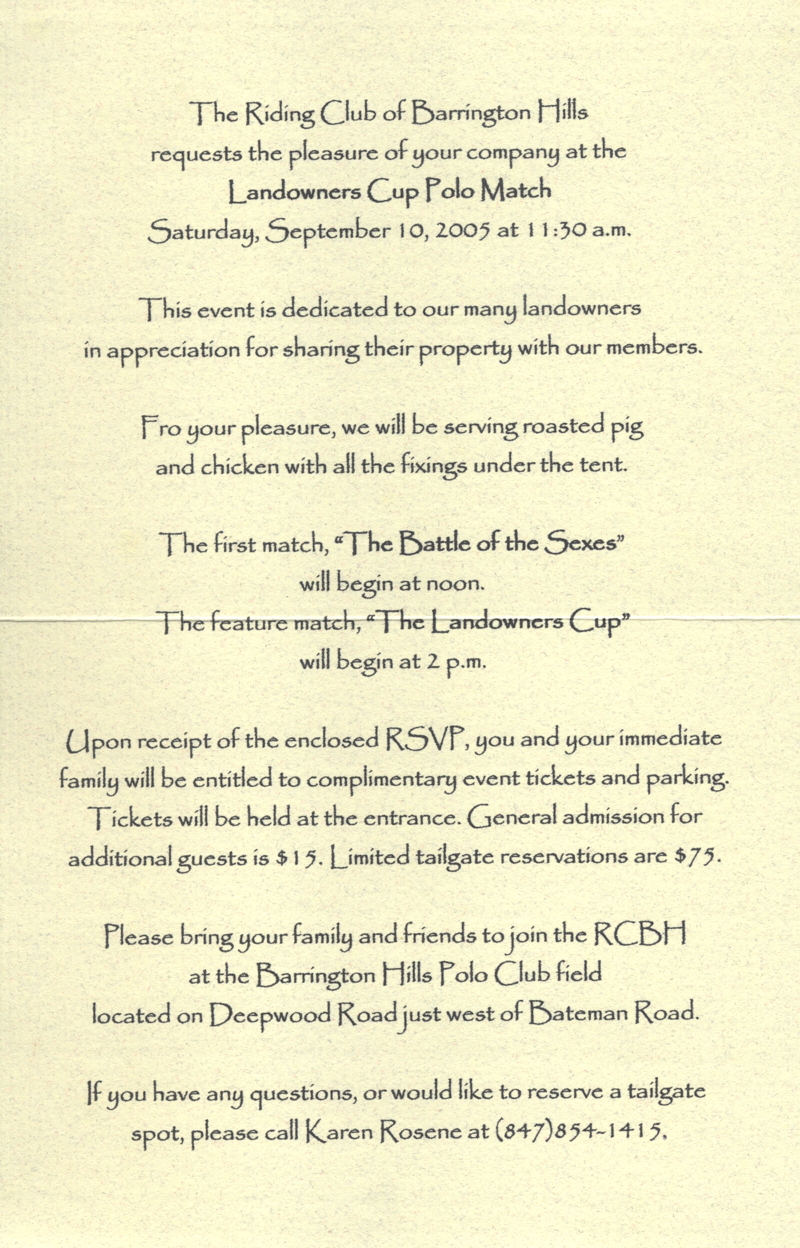 The Riding Club of Barrington Hills
requests the pleasure of your company at the
Landowners Cup Polo Match
Saturday, September 10, 2005 at 11:30 a.m.
This event is dedicated to our many landowners
in appreciation for sharing their property with our members.
Fro your pleasure, we will be serving roasted pig
and chicken with all the fixings under the tent.
The first match, “The Battle of the Sexes”
will begin at noon.
The feature match, “The Landowners Cup”
will begin at 2 p.m.
Upon receipt of the enclosed RSVP, you and your immediate
family will be entitled to complimentary event tickets and parking.
Tickets will be held at the entrance. General admission for
additional guests is $15. Limited tailgate reservations are $75.
Please bring your family and friends to join the RCBH
at the Barrington Hills Polo Club field
located on Deepwood Road just west of Bateman Road.
If you have any questions, or would like to reserve a tailgate
spot, please call Karen Rosene at (847)854-1415.